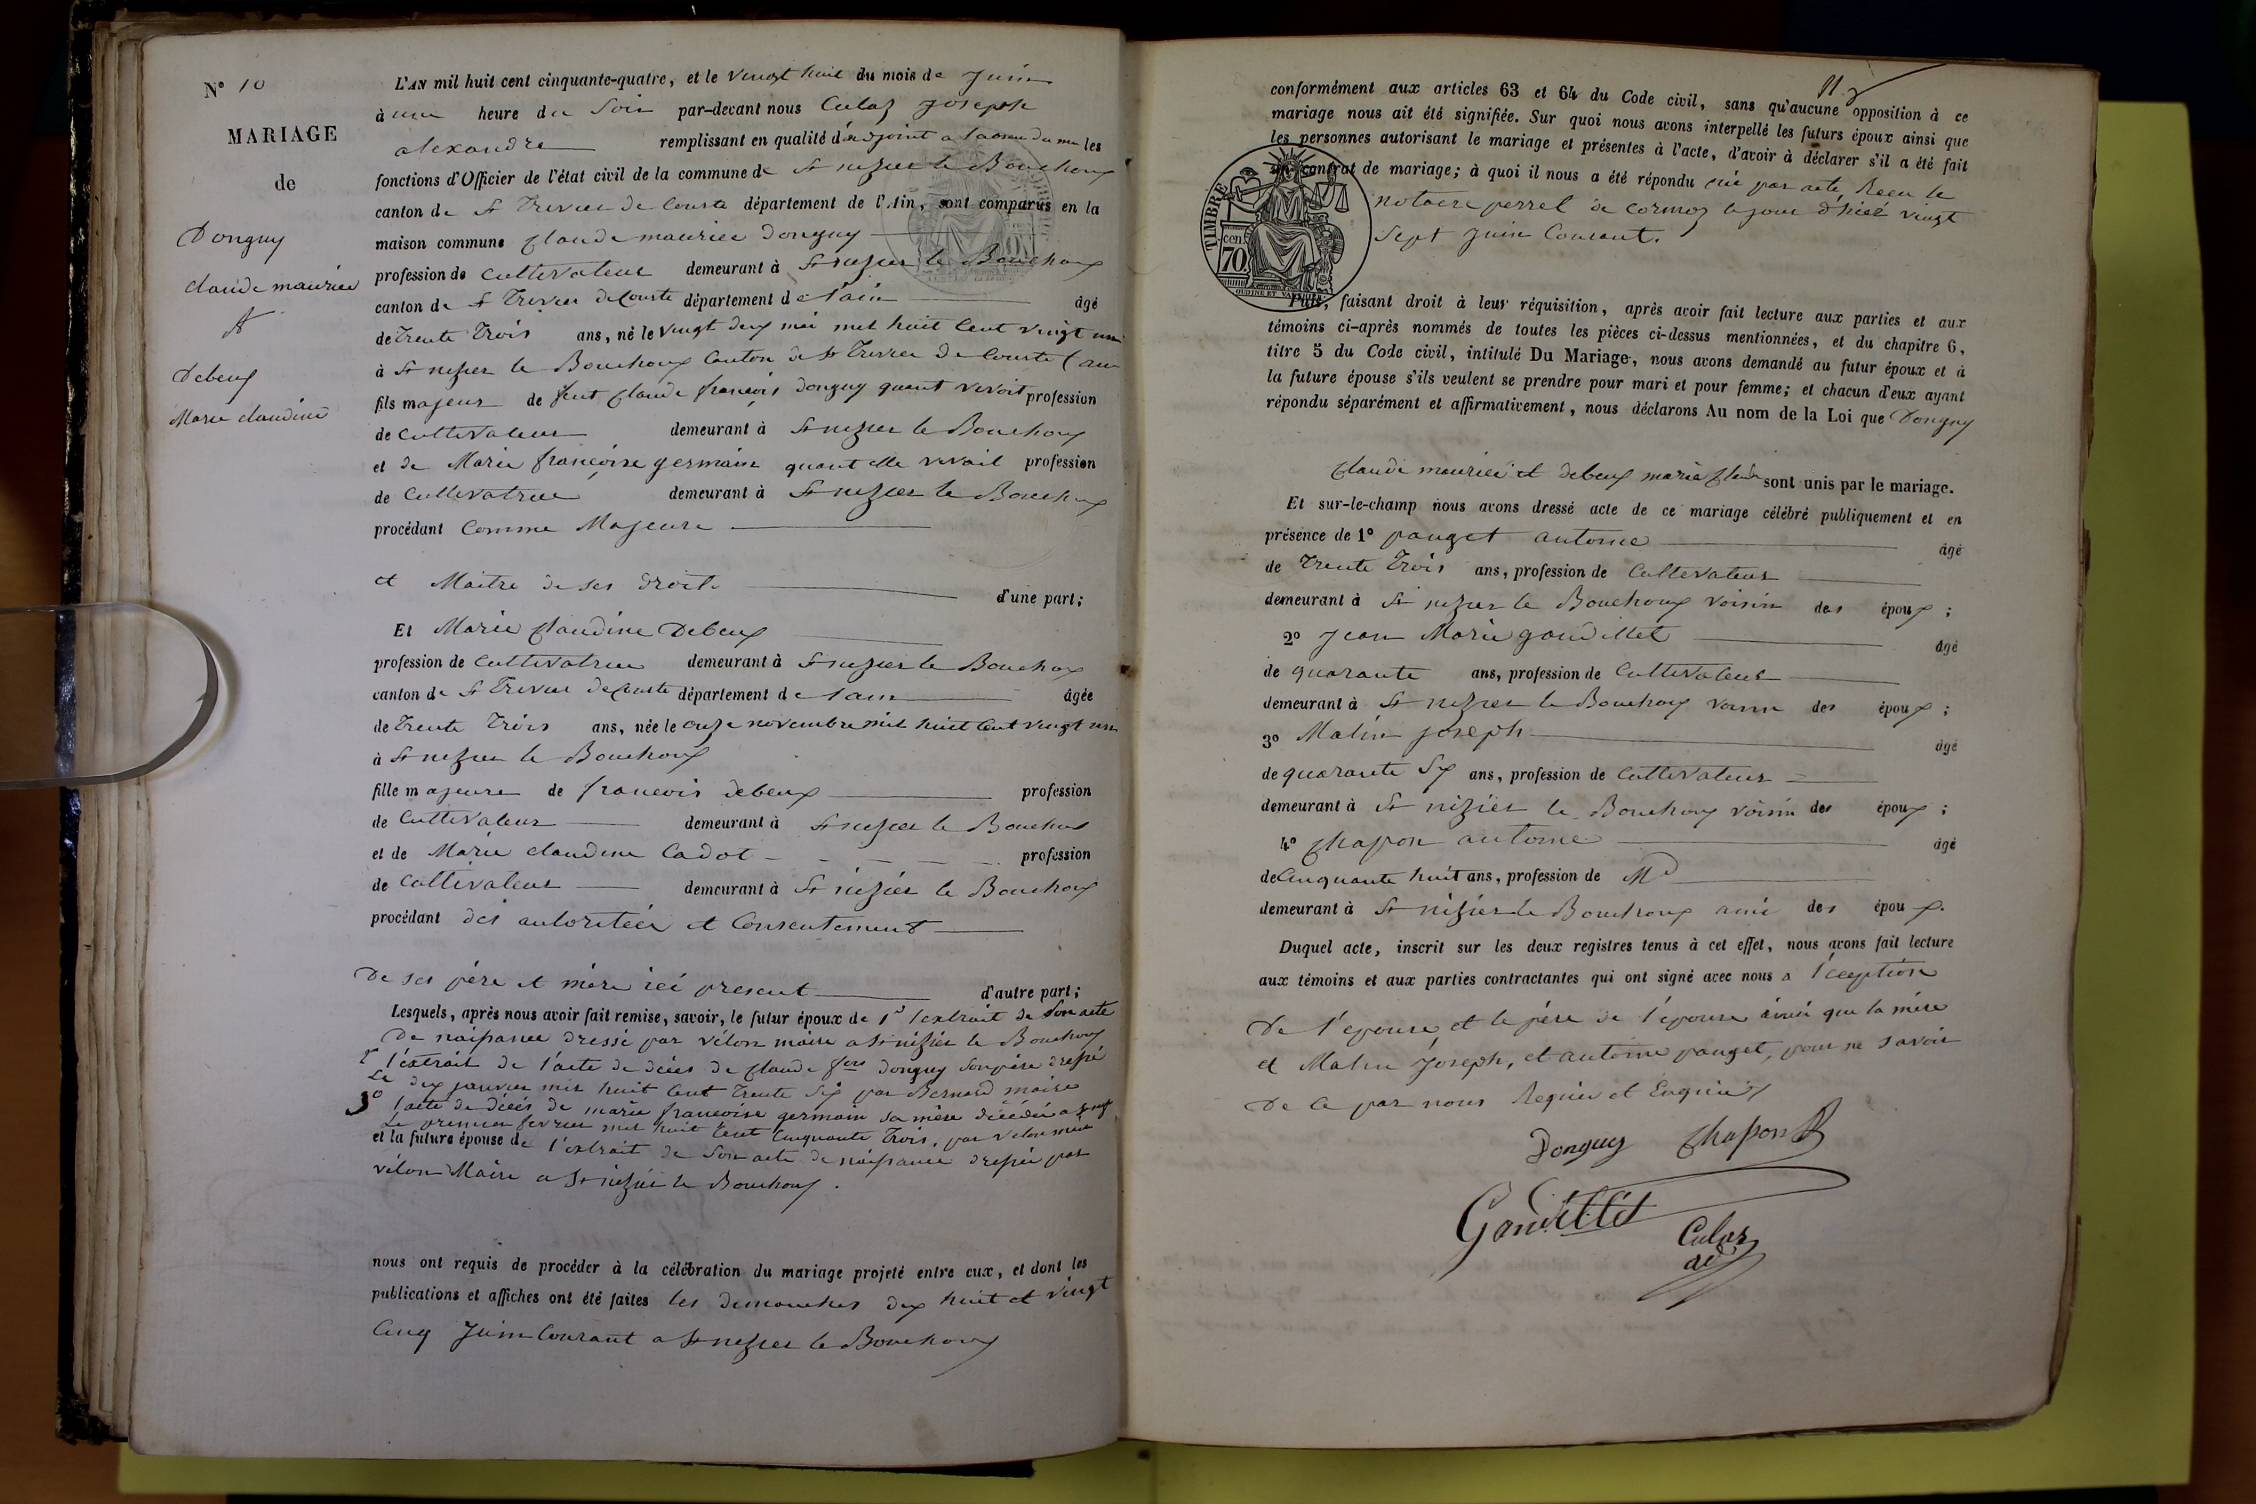 N° 10
MARIAGE
de
Donguy
claude maurice
et
Debeuf
Marie claudine
L'AN mil huit cent cinquante-quatre, et le vingt huit du mois de Juin
à une heure du Soir par-devant nous Culaz Joseph
alexandre remplissant en qualité d'adjoint a les
fonctions d'Officier de l'état civil de la commune de St nizier le Bouchoux
canton de St Trivier de Courte département de l'Ain, sont comparus en la
maison commune Claude maurice Donguy
profession de Cultivateur demeurant à St nizier le Bouchoux
canton de St Trivier de Courte département de l'ain âgé
de Trente Trois ans, né le vingt deux mai mil huit Cent vingt un
à St nizier le Bouchoux Canton de St Trivier de Courte (ain
fils majeur de feut Claude francois Donguy quant vivoit profession
de Cultivateur demeurant à St nizier le Bouchoux
et de Marie francoise germain quant elle vivait profession
de Cultivatrice demeurant à St nizier le Bouchoux
procédant Comme Majeure
et Maitre de ses droits d'une part;
Et Marie Claudine Debeux
profession de Cultivatrice demeurant à St nizier le Bouchoux
canton de St Trivier de Courte département de l'ain âgée
de Trente Trois ans, née le onze novembre mil huit Cent vingt un
à St nizier le Bouchoux
fille majeure de francois debeux profession
de Cultivateur demeurant à St nizier le Bouchoux
et de Marie claudine Cadot profession
de Cultivateur demeurant à St nizier le Bouchoux
procédant des autoritée et Consentement
De ses père et mère ici present d'autre part;
Lesquels, après nous avoir fait remise, savoir, le futur époux de 1° l'extrait de Son acte
De naissance dressé par vélon maire a St nizier le Bouchoux
2° l'extrait de l'acte de décès de Claude fcois Donguy Son père dressé
Le dix janvier mil huit Cent Trente Six par Bernard maire
3° l'acte de décès de marie francoise germain sa mère décédée a
Le premier fevrier mil huit Cent Cinquante Trois, par vélon maire
et la future épouse de l'extrait de Son acte de naissance dressée par
vélon Maire a St nizier le Bouchoux.
nous ont requis de procéder à la célébration du mariage projeté entre eux, et dont les
publications et affiches ont été faites les dimanches dix huit et vingt
Cinq Juin Courant a St nizier le Bouchoux
conformément aux articles 63 et 64 du Code civil, sans qu'aucune opposition à ce
mariage nous ait été signifiée. Sur quoi nous avons interpellé les futurs époux ainsi que
les personnes autorisant le mariage et présentes à l'acte, d'avoir à déclarer s'il a été fait
un contrat de mariage; à quoi il nous a été répondu oui par acte Recu le
notaire perret de cormoz le jour d'hiez vingt
Sept Juin Courant.
TIMBRE
cen.
70
OUDINÉ ET
Puis, faisant droit à leur réquisition, après avoir fait lecture aux parties et aux
témoins ci-après nommés de toutes les pièces ci-dessus mentionnées, et du chapitre 6,
titre 5 du Code civil, intitulé Du Mariage, nous avons demandé au futur époux et à
la future épouse s'ils veulent se prendre pour mari et pour femme; et chacun d'eux ayant
répondu séparément et affirmativement, nous déclarons Au nom de la Loi que Donguy
Claude maurice et debeux marie sont unis par le mariage.
Et sur-le-champ nous avons dressé acte de ce mariage célébré publiquement et en
présence de 1° pauget antoine âgé
de Trente Trois ans, profession de Cultivateur
demeurant à St nizier le Bouchoux voisin des époux;
2° Jean Marie gandillet âgé
de quarante ans, profession de Cultivateur
demeurant à St nizier le Bouchoux voisin des époux;
3° Malin Joseph âgé
de quarante Six ans, profession de Cultivateur
demeurant à St nizier le Bouchoux voisin des époux;
4° Chapon antoine âgé
de Cinquante huit ans, profession de Md
demeurant à St nizier le Bouchoux ami des époux.
Duquel acte, inscrit sur les deux registres tenus à cet effet, nous avons fait lecture
aux témoins et aux parties contractantes qui ont signé avec nous a l'éception
De l'epouse et le père de l'épouse ainsi que la mère
et Malin Joseph, et antoine pauget, pour ne savoir
De Ce par nous Requis et Enquis
Donguy Chapon
Gandillet
Culaz
adj